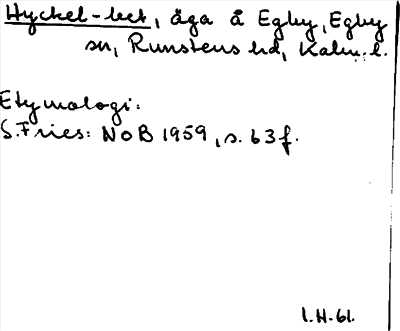 Hyckel-bet, äga å Egby, Egby
sn, Runstens hd, Kalm. l.
Etymologi:
S. Fries: NoB 1959, s. 63 f.
l. H. 61.